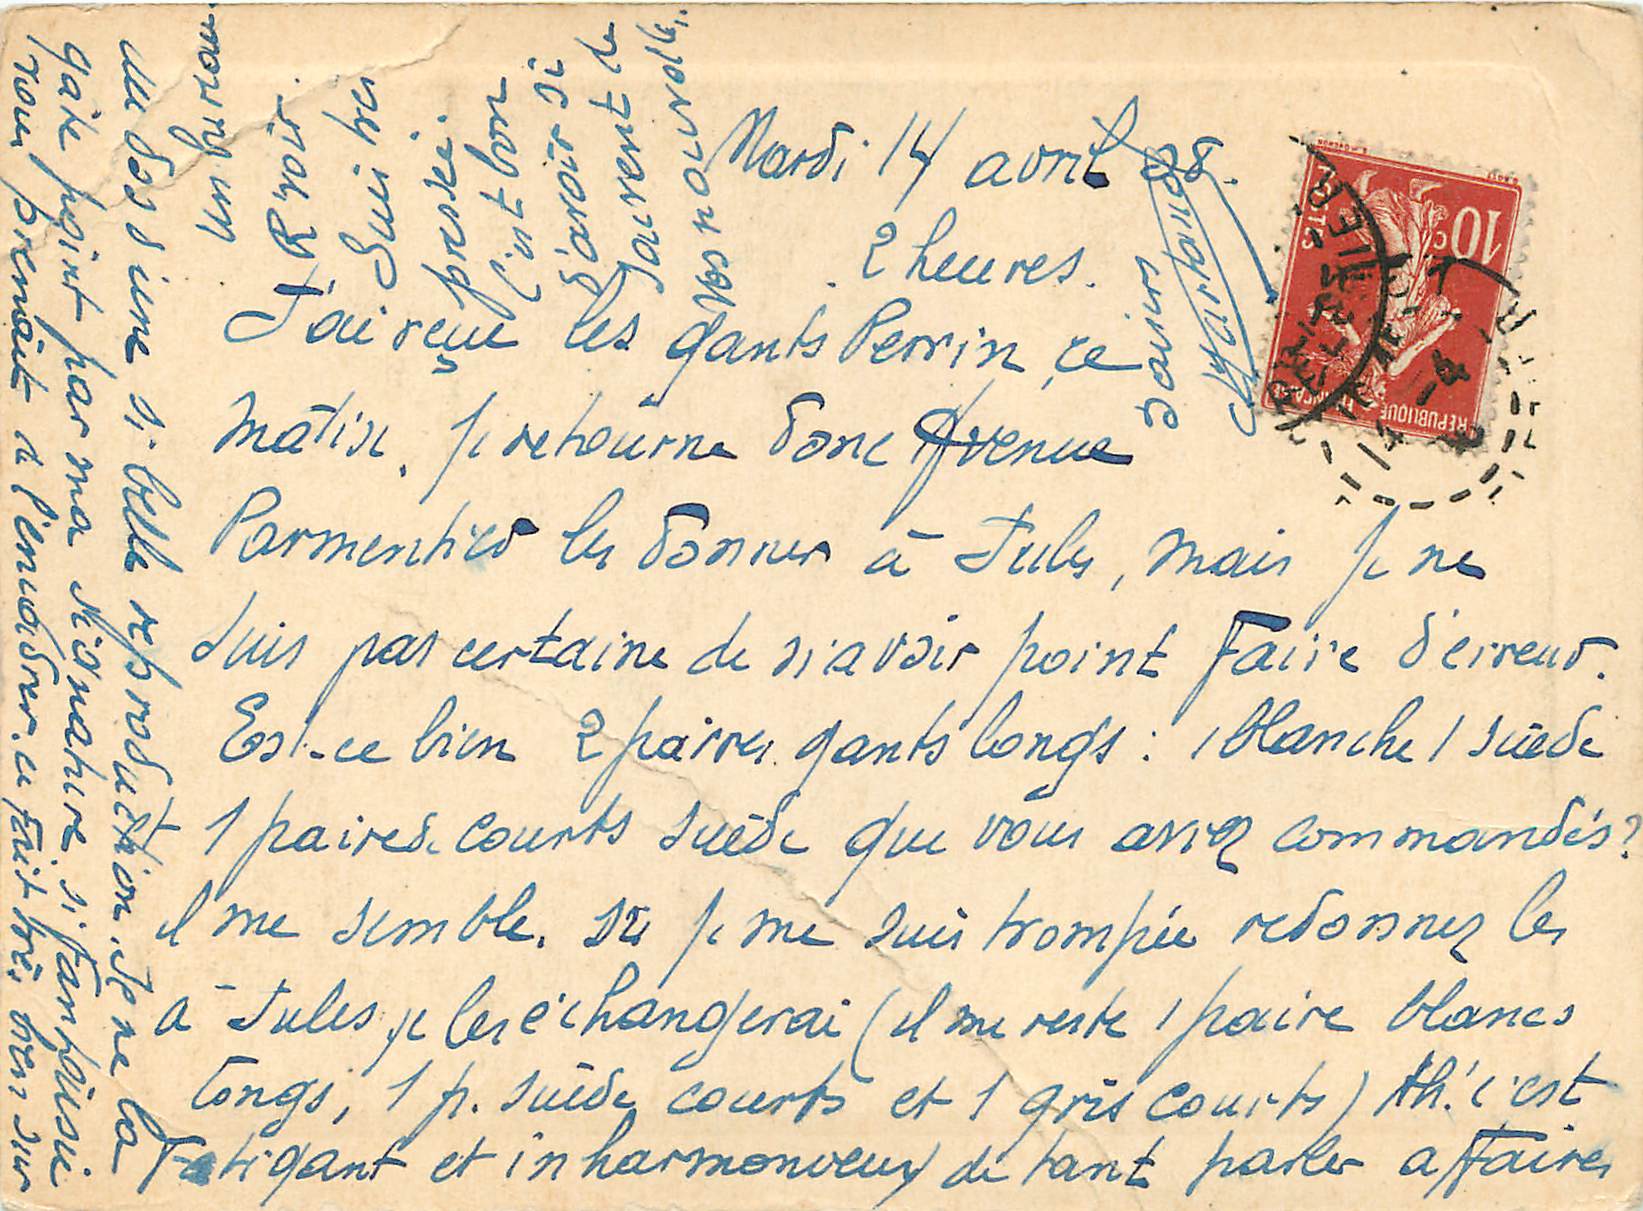 Mardi 14 avril 08.
2 heures.
J'ai reçu les gants Perrin, ce
matin. je retourne donc Avenue
Parmentier les donner à Jules, mais je ne
suis pas certaine de n'avoir point faire d'erreur.
Est-ce bien 2 paires gants longs : 1 blanche 1 suède
1 paire de courts suède que vous aviez commandés?
il me semble. Si je me suis trompée redonnez les
à Jules, je les échangerai (il me reste 1 paire blancs
longs, 1 p. suède courts et 1 gris courts) Ah! c'est
fatigant et inharmonieux de tant parler affaires
au dos d'une si belle reproduction. Je ne la
gâte point par ma signature, si fantaisie
vous prenait de l'encadrer. ce fait très bien sur
un
R'voir
Suis très
pressée.
C'est bon
d'avoir si
souvent de
vos nouvelles.
gairs
REPUBLIQUE FRANÇAISE
POSTES
10 c
PARIS
14
4